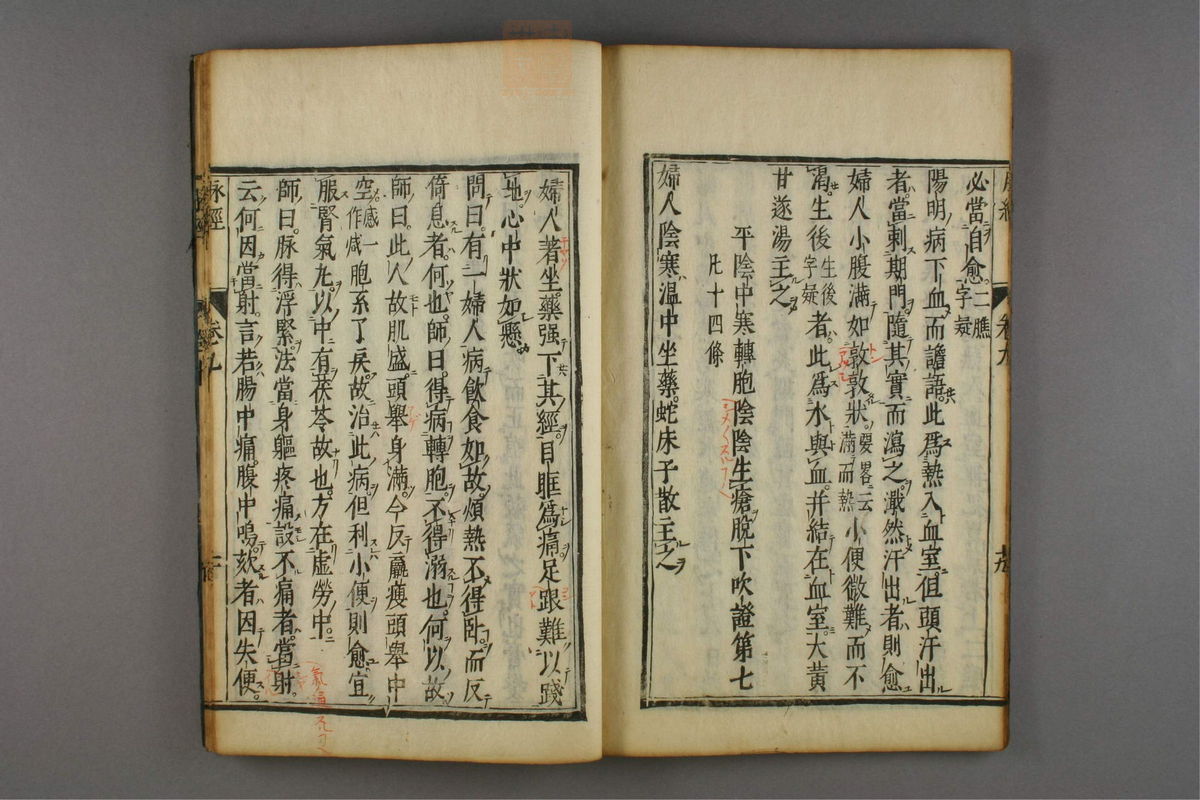 必當自愈二字疑膲
陽明病下血而譫語此為熱入血室但頭汗出
者當刺期門隨其實而瀉之濈然汗出者則愈
婦人小腹滿如敦敦狀要畧云滿而熱小便微難而不
渴生後生後字疑者此為水與血并結在血室大黃
甘遂湯主之
平陰中寒轉胞陰陰生瘡脫下吹證第七
凡十四條
婦人陰寒溫中坐藥蛇床子散主之
婦人著坐藥强下其經目眶為痛足跟難以踐
地心中狀如懸
問曰有一婦人病飲食如故煩熱不得臥而反
倚息者何也師曰得病轉胞不得溺也何以故
師曰此人故肌盛頭舉身滿今反羸瘦頭舉中
空感一作減胞系了戾故治此病但利小便則愈宜
服腎氣丸以中有茯苓故也方在虛勞中
師曰脉得浮緊法當身軀疼痛設不痛者當射
云何因當射言若腸中痛腹中鳴欬者因失便
脉經
卷九